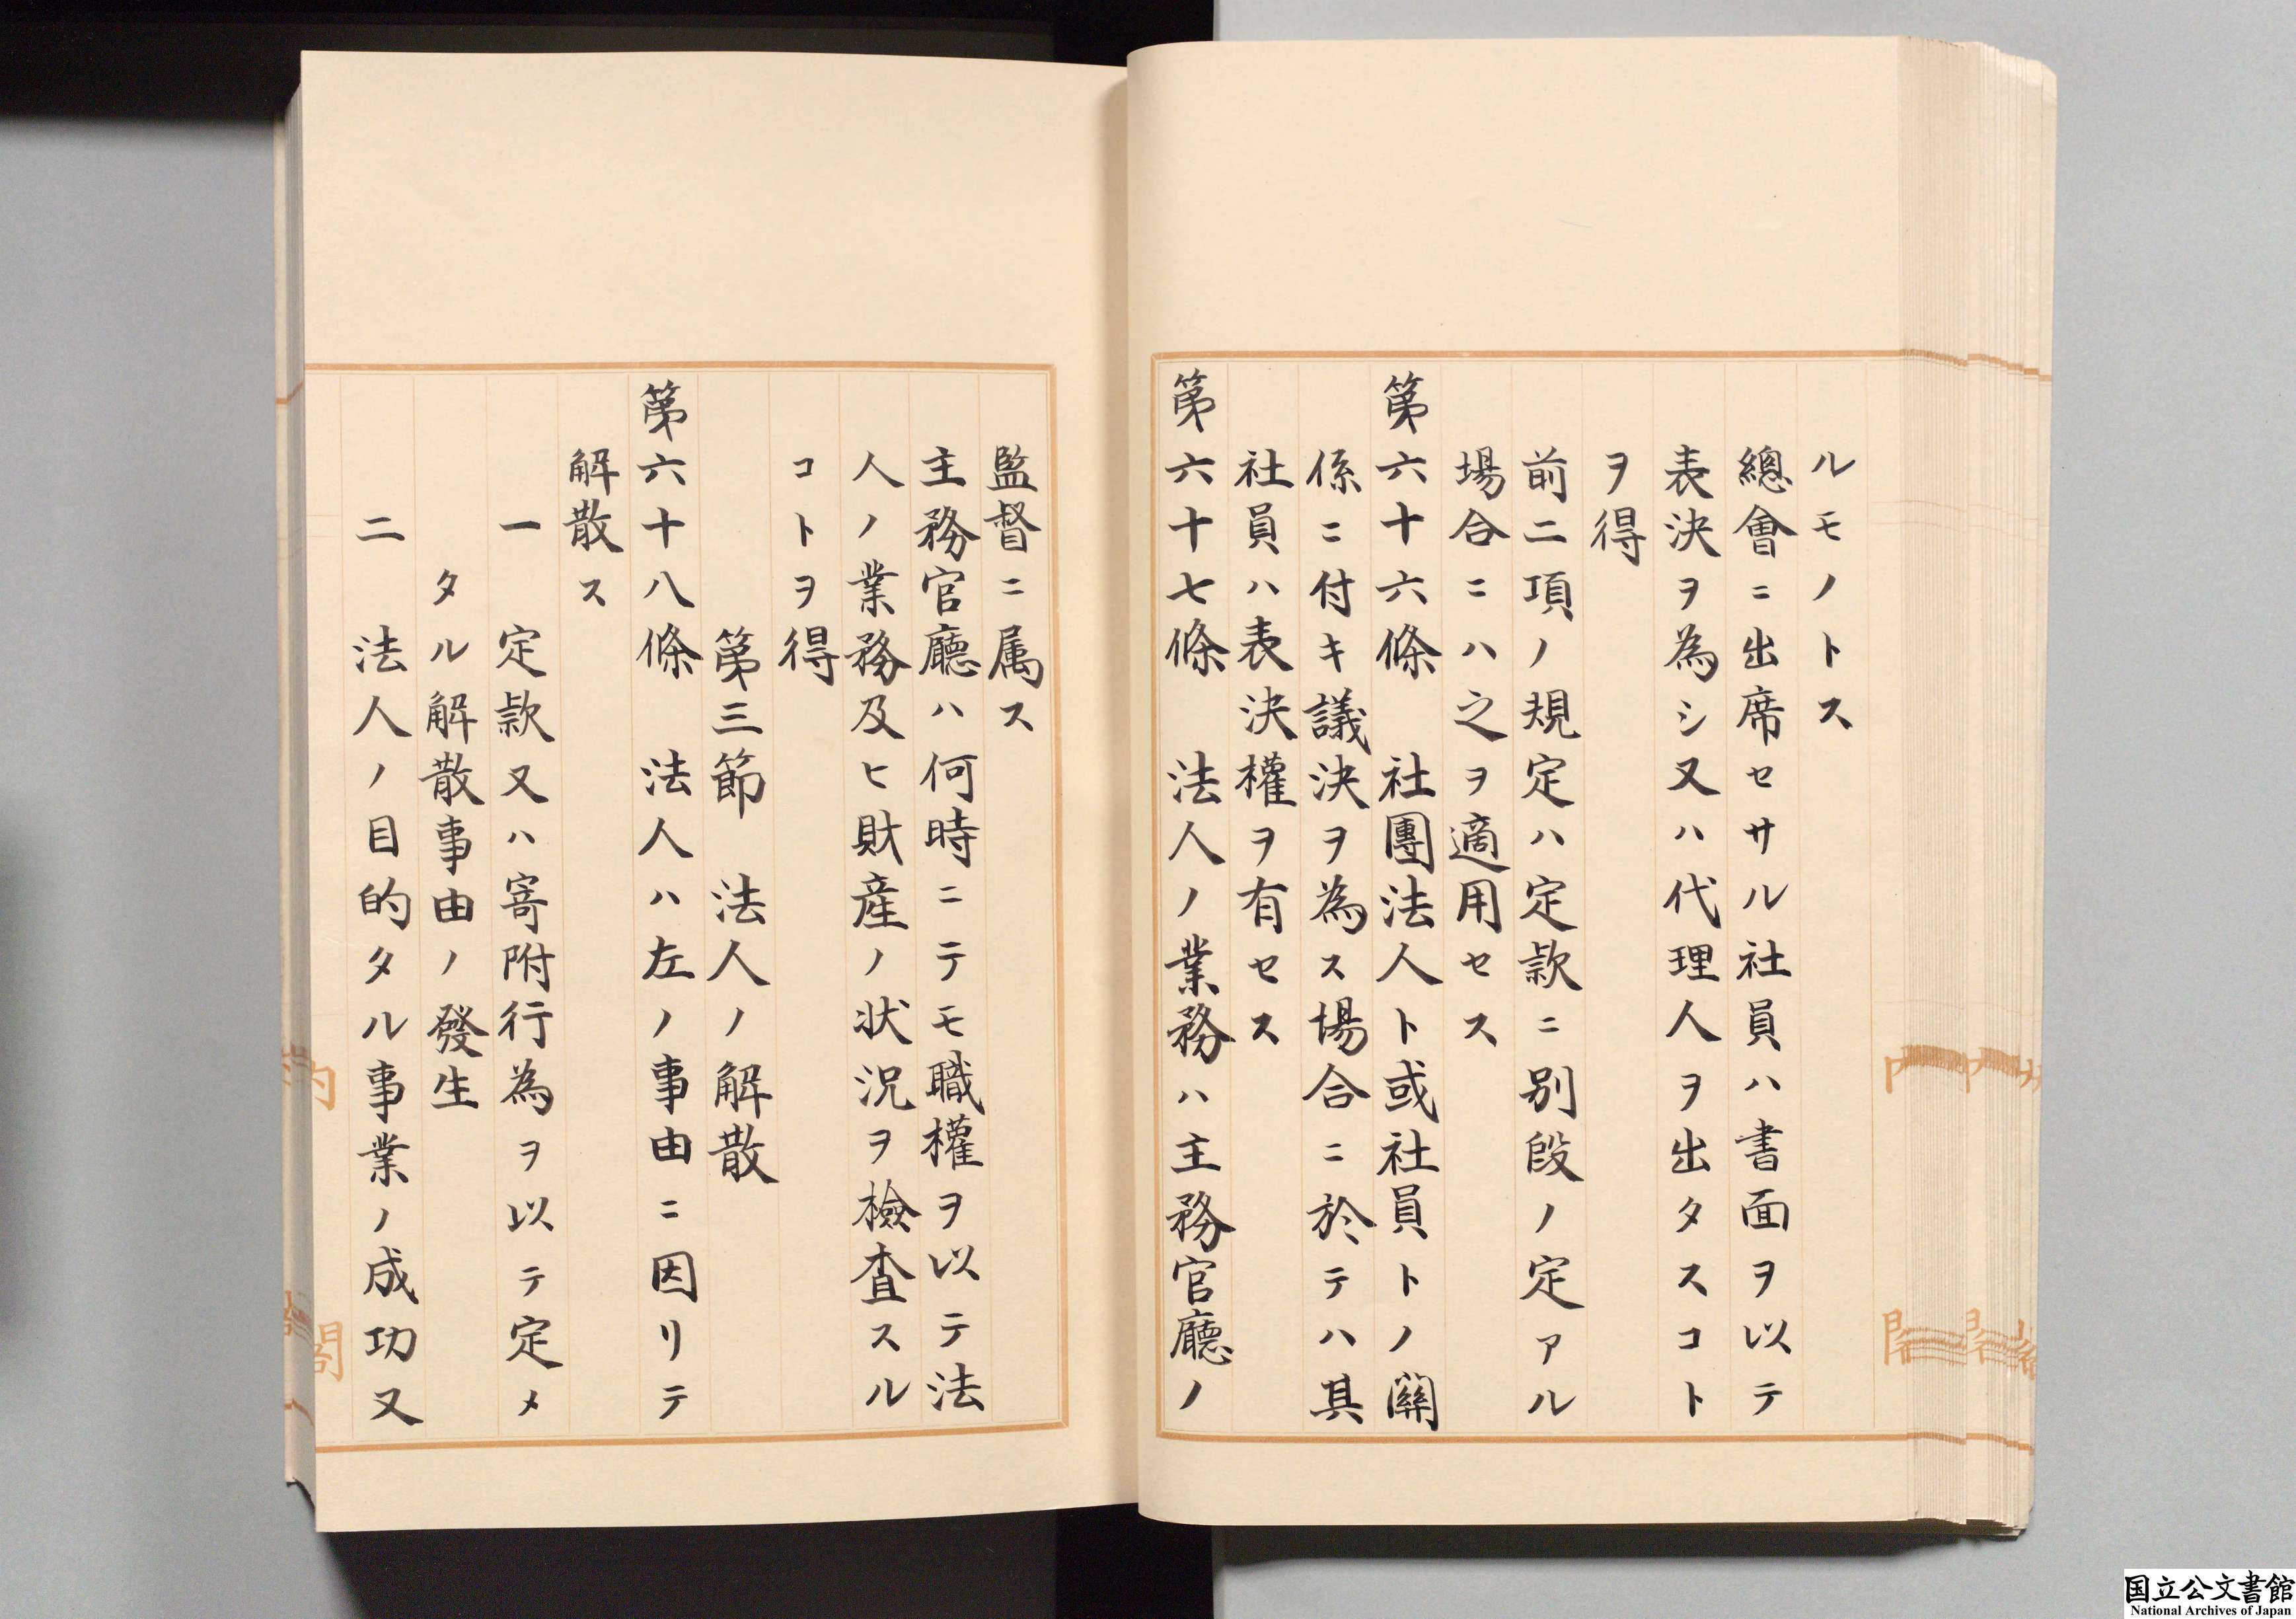 ルモノトス
總會ニ出席セサル社員ハ書面ヲ以テ
表決ヲ為シ又ハ代理人ヲ出タスコト
ヲ得
前二項ノ規定ハ定款ニ別段ノ定アル
場合ニハ之ヲ適用セス
第六十六條　社團法人ト或社員トノ關
係ニ付キ議決ヲ為ス場合ニ於テハ其
社員ハ表決權ヲ有セス
第六十七條　法人ノ業務ハ主務官廳ノ
監督ニ属ス
主務官廳ハ何時ニテモ職權ヲ以テ法
人ノ業務及ヒ財産ノ状況ヲ檢査スル
コトヲ得
第三節　法人ノ解散
第六十八條　法人ハ左ノ事由ニ因リテ
解散ス
一　定款又ハ寄附行為ヲ以テ定メ
タル解散事由ノ發生
二　法人ノ目的タル事業ノ成功又
国立公文書館
National Archives of Japan